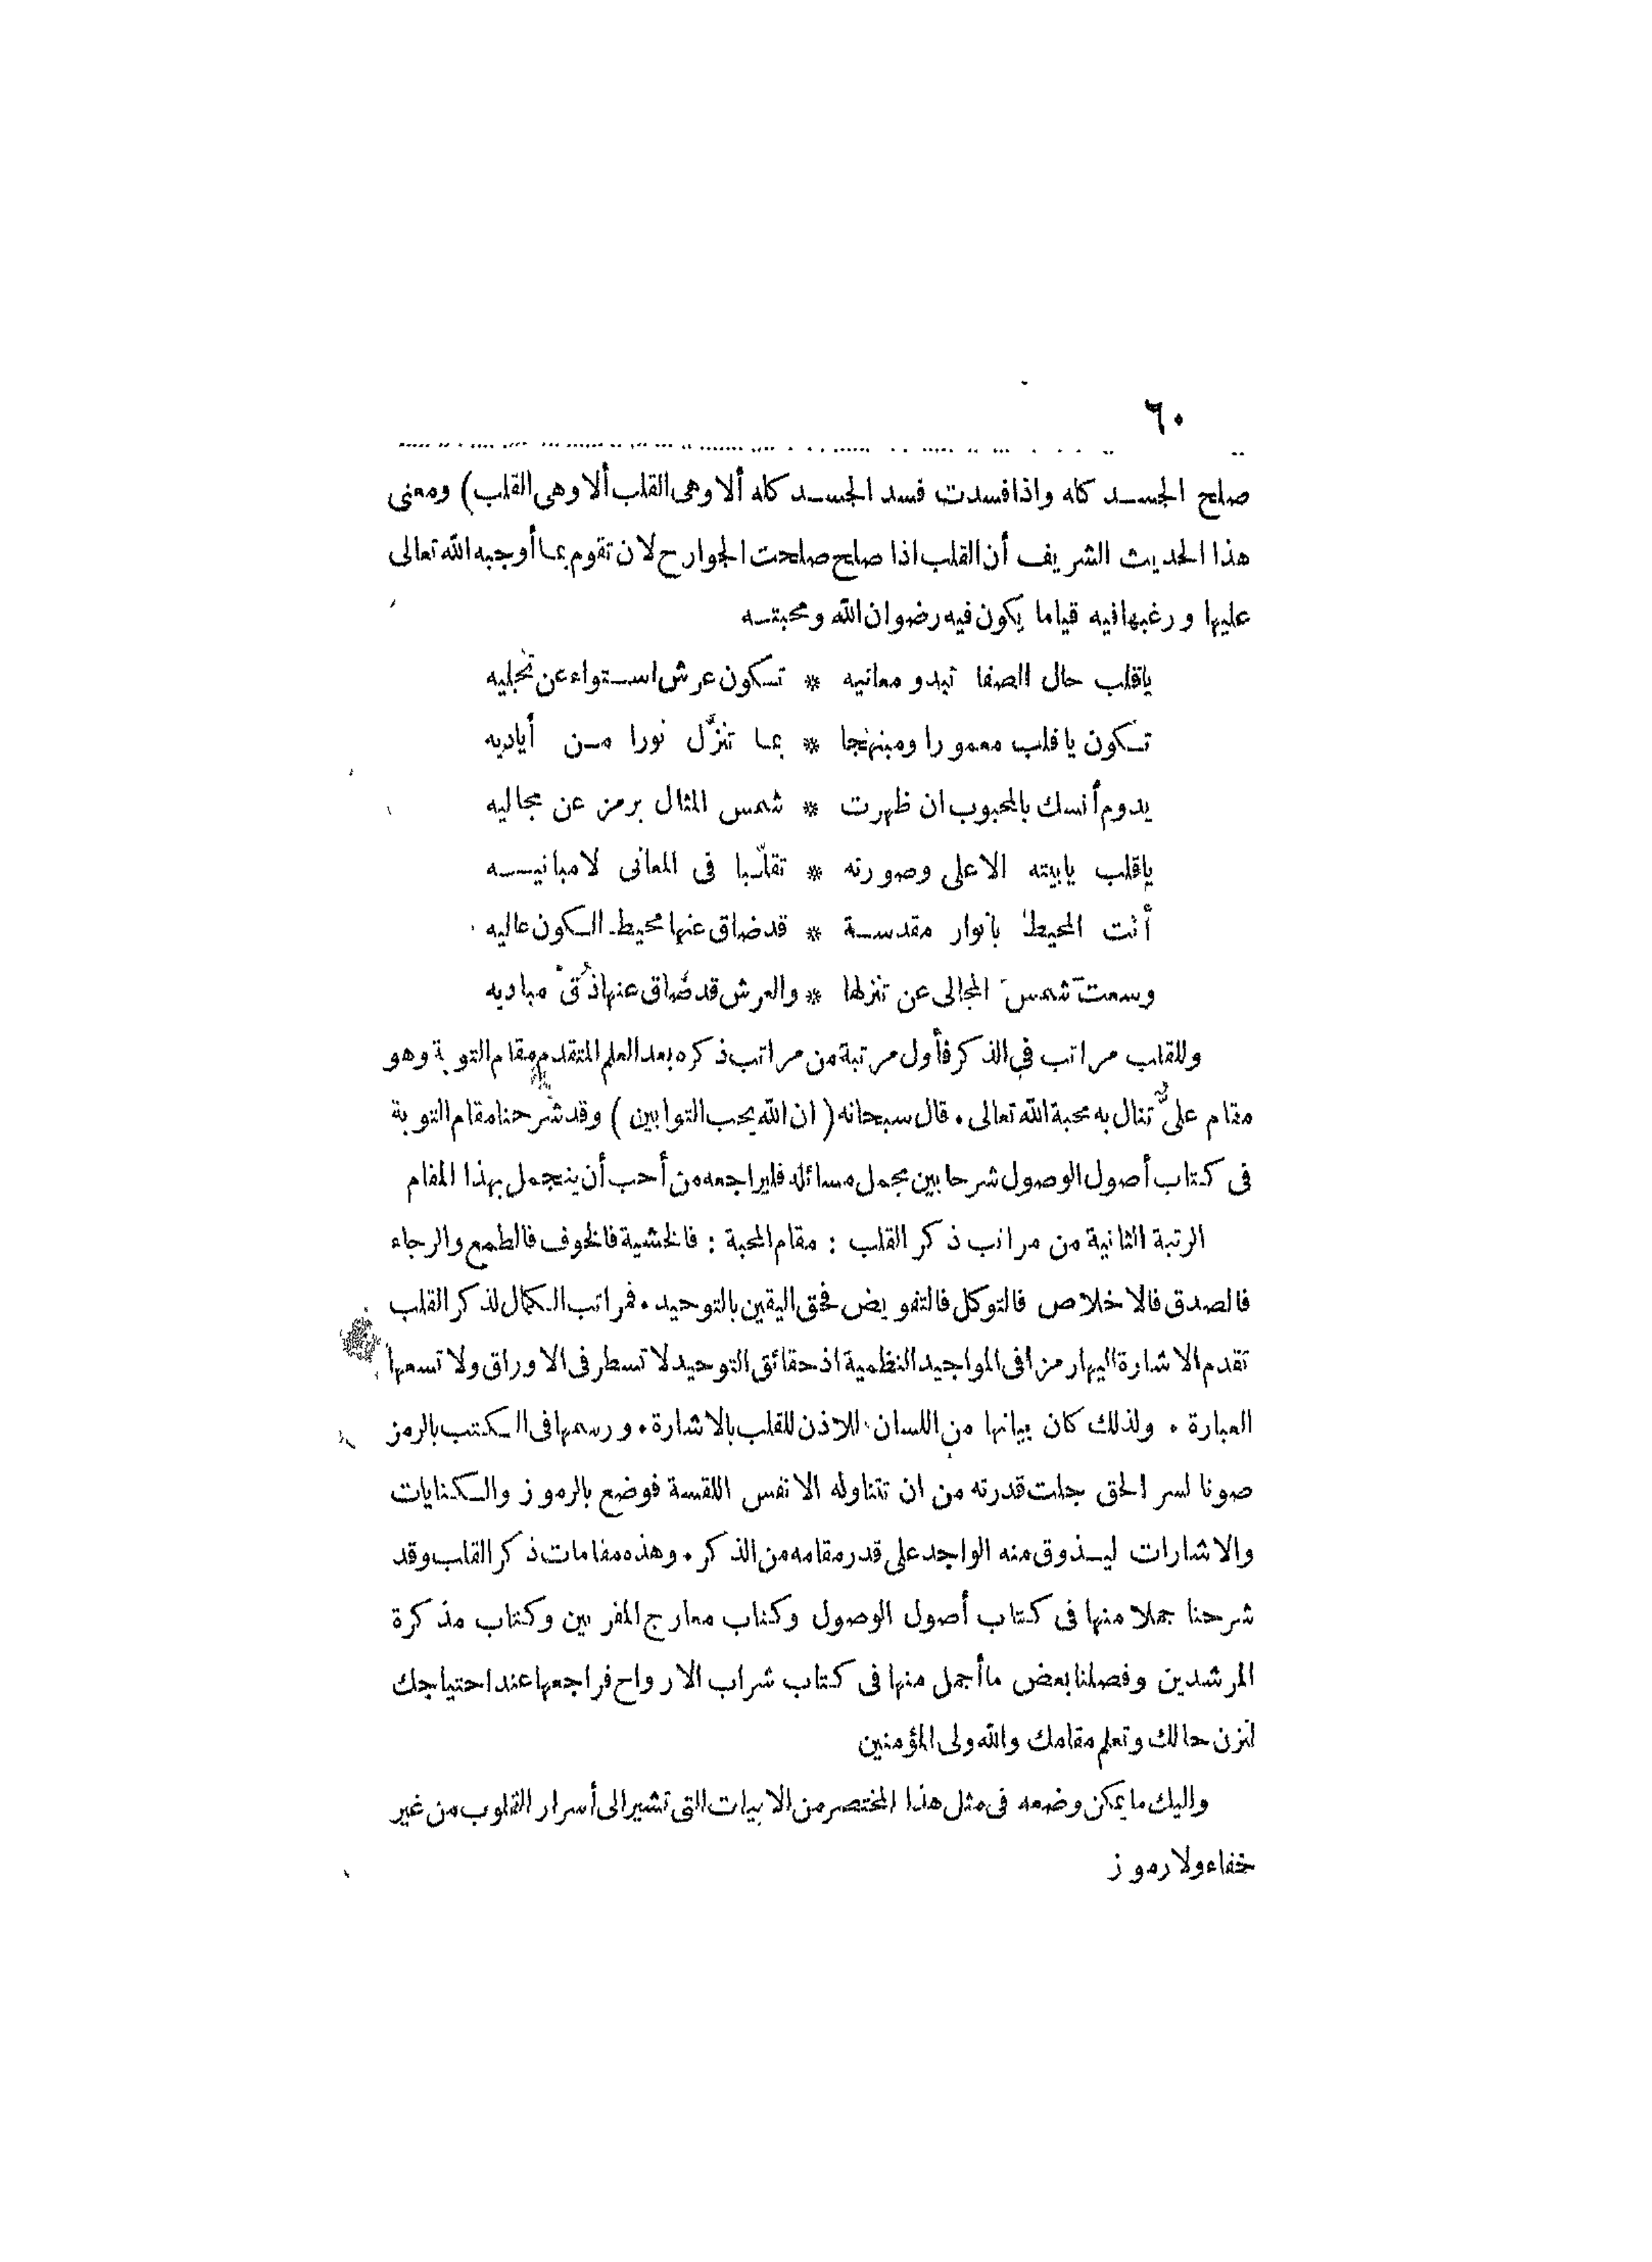 ٦٠
صلح الجسد كله واذا فسدت فسد الجسد كله ألا وهى القلب ألا وهى القلب) ومعنى
هذا الحديث الشريف أن القلب اذا صلح صلحت الجوارح لان تقوم بما أوجبه الله تعالى
عليها ورغبها فيه قياما يكون فيه رضوان الله ومحبته
ياقلب حال الصفا تبدو معانيه * تكون عرش استواء عن تجليه
تكون ياقلب معمورا ومبتهجا * بما تنزّل نورا من أياديه
يدوم أنسك بالمحبوب ان ظهرت * شمس المثال برمز عن مجاليه
ياقلب يابيته الاعلى وصورته * تقلّبا فى المعانى لامبانيه
أنت المحيط بانوار مقدسة * قد ضاق عنها محيط الكون عاليه
وسعت شمس المجالى عن تنزلها * والعرش قد ضاق عنها ذُق مباديه
وللقلب مراتب في الذكر فأول مرتبة من مراتب ذكره بعد العلم المتقدم مقام التوبة وهو
مقام علىّ تنال به محبة الله تعالى . قال سبحانه (ان الله يحب التوابين) وقد شرحنا مقام التوبة
فى كتاب أصول الوصول شرحا بين مجمل مسائله فليراجعه من أحب أن يتجمل بهذا المقام
الرتبة الثانية من مراتب ذكر القلب : مقام المحبة : فالخشية فالخوف فالطمع والرجاء
فالصدق فالاخلاص فالتوكل فالتفويض فحق اليقين بالتوحيد . فمراتب الكمال لذكر القلب
تقدم الاشارة اليها رمزا فى المواجيد النظمية اذ حقائق التوحيد لا تسطر فى الاوراق ولا تسعها
العبارة . ولذلك كان بيانها من اللسان للاذن للقلب بالاشارة . ورسمها فى الكتب بالرمز
صونا لسر الحق جلت قدرته من ان تتناوله الانفس اللقسة فوضع بالرموز والكنايات
والاشارات ليذوق منه الواجد على قدر مقامه من الذكر . وهذه مقامات ذكر القلب وقد
شرحنا جملا منها فى كتاب أصول الوصول وكتاب معارج المقربين وكتاب مذكرة
المرشدين وفصلنا بعض ما أجمل منها فى كتاب شراب الارواح فراجعها عند احتياجك
لتزن حالك وتعلم مقامك والله ولى المؤمنين
واليك ما يمكن وضعه فى مثل هذا المختصر من الابيات التى تشير الى أسرار القلوب من غير
خفاء ولا رموز